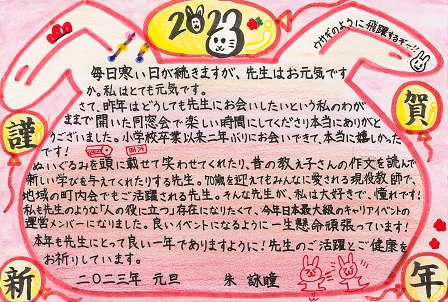 2023
ウサギのように飛躍するぞー!!
謹
賀
新
年
毎日寒い日が続きますが、先生はお元気です
か。私はとても元気です。
さて、昨年はどうしても先生にお会いしたいという私のわが
ままで開いた同窓会で楽しい時間にしてくださり本当にありがと
うございました。小学校卒業以来二年ぶりにお会いできて、本当に嬉しかった
です!
ぬいぐるみを頭に載せて笑わせてくれたり、昔の教え子さんの作文を読んで
新しい学びを与えてくれたりする先生。70歳を迎えてもみんなに愛される現役教師で、
地域の町内会でもご活躍される先生。そんな先生が、私は大好きで、憧れです!
私も先生のような「人の役に立つ」存在になりたくて、今年日本最大級のキャリアイベントの
運営メンバーになりました。良いイベントになるように一生懸命頑張っています!
本年も先生にとって良い一年でありますように!先生のご活躍とご健康を
お祈りしています。
二〇二三年 元旦 朱 詠瞳